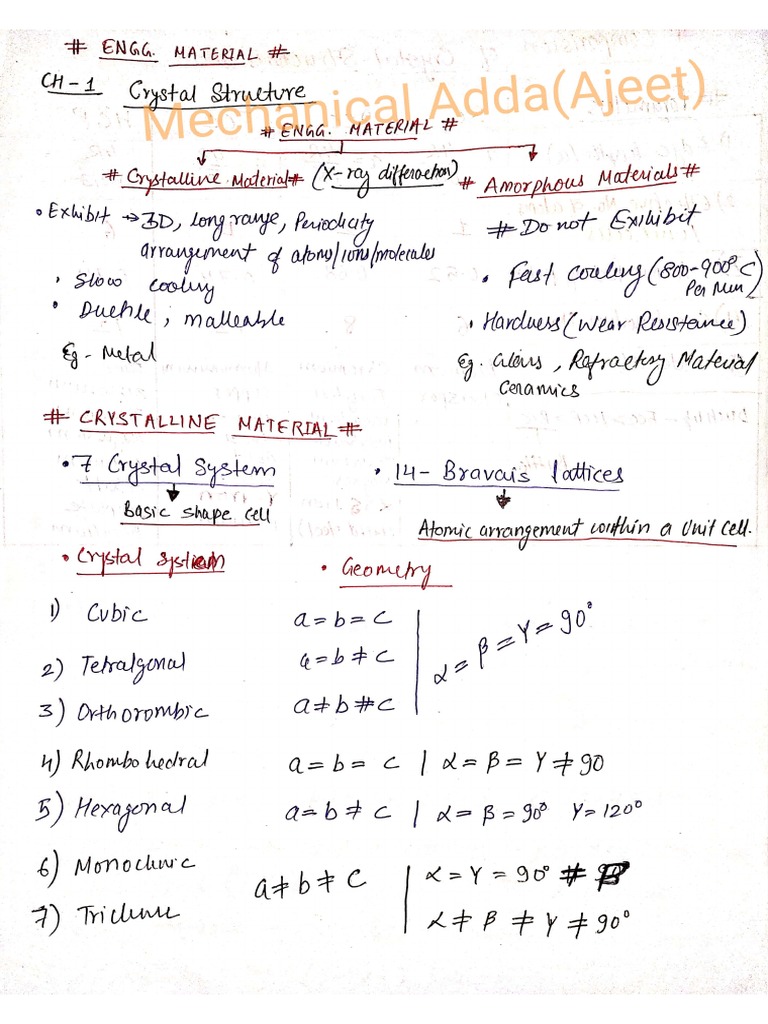 # ENGG. MATERIAL #
CH-1 Crystal Structure
Mechanical Adda(Ajeet)
# ENGG. MATERIAL #
# Crystalline Material # (X-ray diffraction) # Amorphous Materials #
• Exhibit → 3D, long range, Periodicity
arrangement of atoms/ions/molecules
• Slow cooling
• Ductile, malleable
Eg - Metal
# Do not Exihibit
• Fast cooling (800-900°C)
Per Min
• Hardness (Wear Resistance)
Eg. , Refractory Material
Ceramics
# CRYSTALLINE MATERIAL #
• 7 Crystal System • 14- Bravais lattices
Basic shape cell
Atomic arrangement within a Unit Cell.
• Crystal System • Geometry
1) Cubic a = b = c
2) Tetralgonal a = b ≠ c
3) Orthorombic a ≠ b ≠ c
α = β = γ = 90°
4) Rhombohedral a = b = c | α = β = γ ≠ 90
5) Hexagonal a = b ≠ c | α = β = 90° γ = 120°
6) Monoclinic a ≠ b ≠ c | α = γ = 90° ≠ β
7) Triclinic α ≠ β ≠ γ ≠ 90°